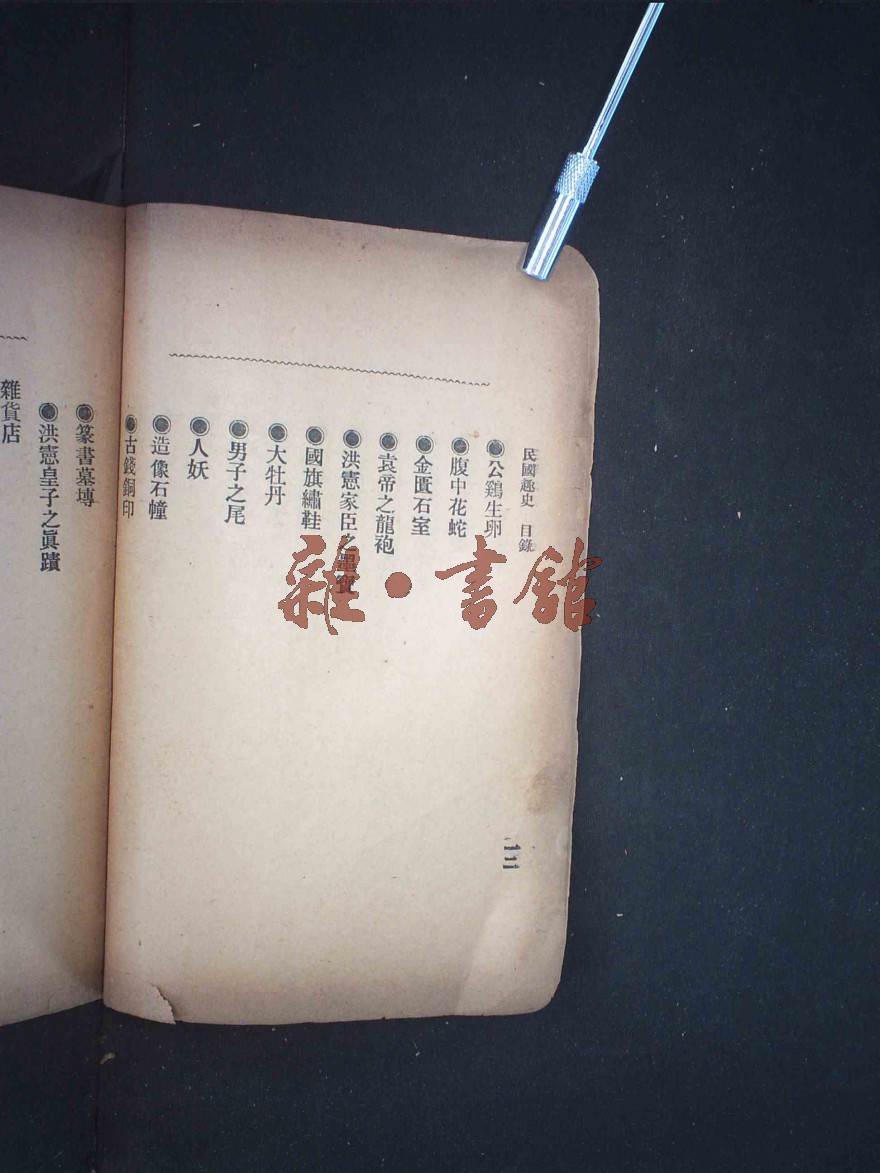 民國趣史 目錄
◉公鷄生卵
◉腹中花蛇
◉金匱石室
◉袁帝之龍袍
◉洪憲家臣之墨寶
◉國旗繡鞋
◉大牡丹
◉男子之尾
◉人妖
◉造像石幢
◉古錢銅印
二二
◉篆書墓塼
◉洪憲皇子之眞蹟
雜貨店
雜·書館